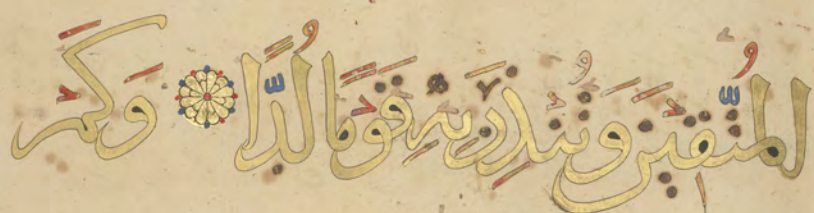 ٱلْمُتَّقِينَ وَتُنذِرَ بِهِۦ قَوْمًا لُّدًّا ۝ وَكَمْ